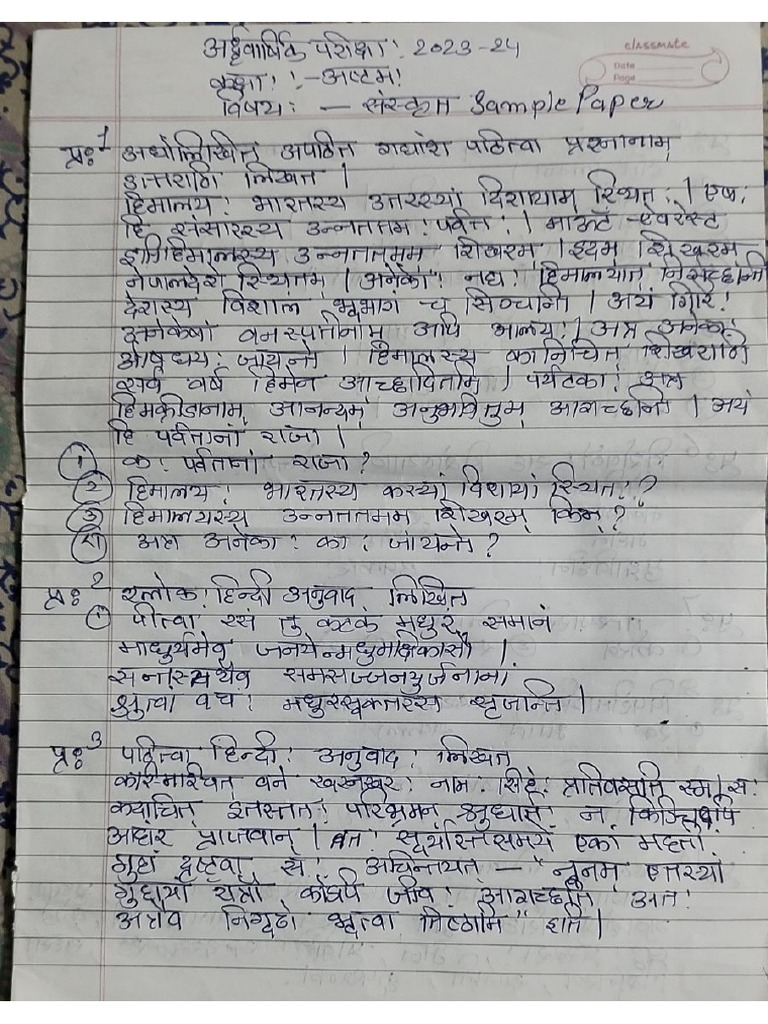 अर्द्धवार्षिक परीक्षा: 2023-24
classmate
Date
Page
कक्षा: :- अष्टम:
विषय: — संस्कृत Sample Paper
प्र॰ 1 अधोलिखित अपठित गद्यांश पठित्वा प्रश्नानाम्
उत्तराणि लिखत |
हिमालय: भारतस्य उत्तरस्यां दिशायाम् स्थित: | एष:
हि संसारस्य उन्नततम: पर्वत: | माऊंट - एवरेस्ट
इति हिमालस्य उन्नततमम शिखरम | इदम् शिखरम
नेपालदेशे स्थितम | अनेका: नद्य: हिमालयात् नि:
देशस्य विशालं भूभागं च सिञ्चन्ति | अयं गिरि:
अनेकेषां वनस्पतीनाम् अपि आलय: | अत्र अनेका:
औषधय: जायन्ते | हिमालस्य कानिचित शिखराणि
सर्व वर्ष हिमेन आच्छादितानि | पर्यटका: अत्र
हिमक्रीडानाम् आनन्दम् अनुभवितुम् आगच्छन्ति | अयं
हि पर्वतानां राजा |
1 क: पर्वतानां राजा ?
2 हिमालय: भारतस्य कस्यां दिशायां स्थित: ?
3 हिमालयस्य उन्नततमम शिखरम् किम् ?
अत्र अनेका: का: जायन्ते ?
प्र॰ 2 श्लोक: हिन्दी अनुवाद लिखित
1 पीत्वा रसं तु कटकं मधुरं समानं
माधुर्यमेव जनयेन्मधुमक्षिकासौ |
सन्तस्तथैव समसज्जनदुर्जनानां
श्रुत्वा वच: मधुरसूक्तरसं सृजन्ति |
प्र॰ 3 पठित्वा हिन्दी: अनुवाद: लिखत
कस्मिंश्चित वने खरनखर: नाम: सिंह: प्रतिवसति स्म | स:
कदाचित् इतस्तत: परिभ्रमन् क्षुधार्त: न किञ्चिदपि
आहारं प्राप्तवान् | तत: सूर्यास्तसमये एकां महतीं
गुहां दृष्ट्वा स: अचिन्तयत — "नूनम् एतस्यां
गुहायां रात्रौ कोऽपि जीव: आगच्छति अत:
अत्रैव निगूढो भूत्वा तिष्ठामि" इति |